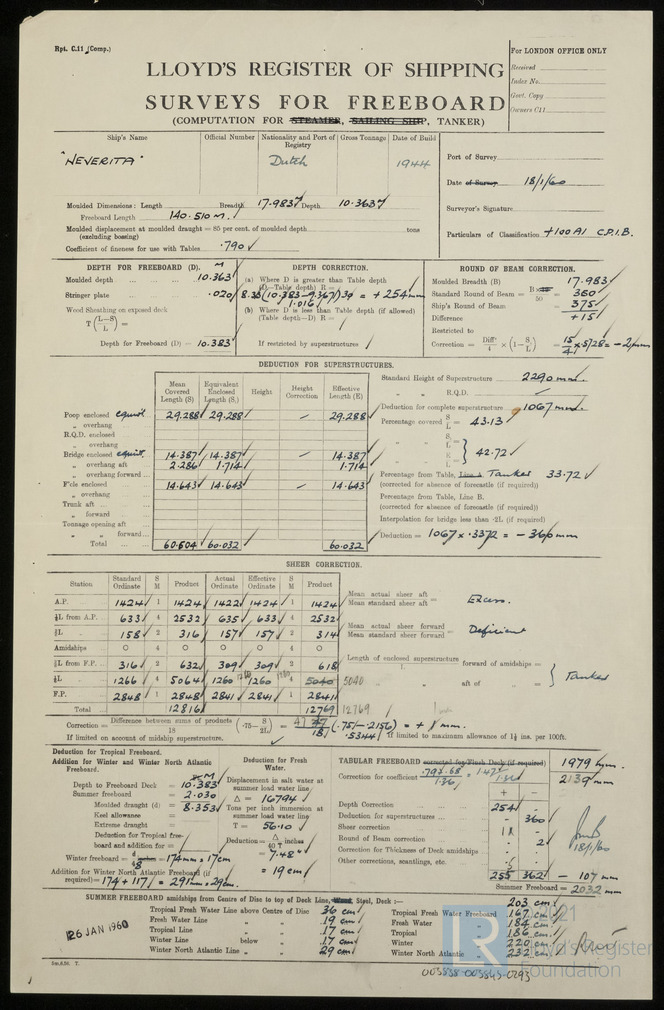 Rpt. C.11 (Comp.)
For LONDON OFFICE ONLY
Received
Index No.
Govt. Copy
Owners C11
LLOYD'S REGISTER OF SHIPPING
SURVEYS FOR FREEBOARD
(COMPUTATION FOR STEAMER, SAILING SHIP, TANKER)
Ship's Name Official Number Nationality and Port of Registry Gross Tonnage Date of Build
"NEVERITA" Dutch 1944
Port of Survey
Date of Survey 18/1/60
Surveyor's Signature
Particulars of Classification +100A1 C.P.I.B.
Moulded Dimensions: Length Breadth 17.983 Depth 10.363
Freeboard Length 140.510 M.
Moulded displacement at moulded draught = 85 per cent. of moulded depth tons
(excluding bossing)
Coefficient of fineness for use with Tables .790
DEPTH FOR FREEBOARD (D).
M
Moulded depth 10.363
Stringer plate .020
Wood Sheathing on exposed deck
T (L-S / L) =
Depth for Freeboard (D) = 10.383
DEPTH CORRECTION.
(a) Where D is greater than Table depth
(D-Table depth) R =
8.33 (10.383 - 9.367) 30 = + 254 mm
1.016
(b) Where D is less than Table depth (if allowed)
(Table depth-D) R =
If restricted by superstructures
ROUND OF BEAM CORRECTION.
Moulded Breadth (B) 17.983
Standard Round of Beam = B / 50 = 360
Ship's Round of Beam = 375
Difference +15
Restricted to
Correction = Diff / 4 × (1 - S / L) = 15 / 4 × .5128 = - 2 mm
DEDUCTION FOR SUPERSTRUCTURES.
Mean Covered Length (S) Equivalent Enclosed Length (S₁) Height Height Correction Effective Length (E)
Poop enclosed equiv. 29.288 29.288 - 29.288
„ overhang
R.Q.D. enclosed
„ overhang
Bridge enclosed equiv. 14.387 14.387 - 14.387
„ overhang aft 2.286 1.714 1.714
„ overhang forward
F'cle enclosed 14.643 14.643 - 14.643
„ overhang
Trunk aft
„ forward
Tonnage opening aft
„ „ forward
Total 60.604 60.032 60.032
Standard Height of Superstructure 2290 mm.
„ „ R.Q.D. -
Deduction for complete superstructure 1067 mm.
Percentage covered S / L = 43.13
„ „ S₁ / L =
„ „ E / L = 42.72
Percentage from Table, Line A Tanker 33.72
(corrected for absence of forecastle (if required))
Percentage from Table, Line B.
(corrected for absence of forecastle (if required))
Interpolation for bridge less than ·2L (if required)
Deduction = 1067 × .3372 = - 360 mm
SHEER CORRECTION.
Station Standard Ordinate S M Product Actual Ordinate Effective Ordinate S M Product
A.P. 1424 1 1424 1422 1424 1 1424
⅙L from A.P. 633 4 2532 635 633 4 2532
⅓L „ 158 2 316 157 157 2 314
Amidships 0 4 0 0 0 4 0
⅓L from F.P. 316 2 632 309 309 2 618
⅙L „ 1266 4 5064 1260 1260 4 5040 5040
F.P. 2848 1 2848 2841 2841 1 2841
Total 12816 12769 12769
Mean actual sheer aft / Mean standard sheer aft = Excess.
Mean actual sheer forward / Mean standard sheer forward = Deficient
Length of enclosed superstructure / L forward of amidships =
„ „ aft of „ = Tanker
Correction = Difference between sums of products / 18 (·75 - S / 2L) = 47 / 18 (.75 - .2156) = + 1 mm.
.5344
If limited on account of midship superstructure.
If limited to maximum allowance of 1½ ins. per 100ft.
Deduction for Tropical Freeboard.
Addition for Winter and Winter North Atlantic Freeboard.
M
Depth to Freeboard Deck = 10.383
Summer freeboard = 2.030
Moulded draught (d) = 8.353
Keel allowance =
Extreme draught =
Deduction for Tropical freeboard and addition for =
Winter freeboard = d / 48 = 174 mm = 17 cm
Addition for Winter North Atlantic Freeboard (if required) = 174 + 117 = 291 mm = 29 cm.
Deduction for Fresh Water.
Displacement in salt water at summer load water line
Δ = 16794
Tons per inch immersion at summer load water line
T = 56.10
Deduction = Δ / 40 T inches
= 7.48"
= 19 cm
TABULAR FREEBOARD corrected for Flush Deck (if required) 1979 mm.
Correction for coefficient .79 + .68 / 1.36 = 1.47 / 1.36 2139 mm
+ -
Depth Correction 254
Deduction for superstructures - 360
Sheer correction 1
Round of Beam correction - 2
Correction for Thickness of Deck amidships -
Other corrections, scantlings, etc. -
255 362 - 107 mm
Summer Freeboard = 2032 mm
18/1/60
SUMMER FREEBOARD amidships from Centre of Disc to top of Deck Line, Wood, Steel, Deck :— 203 cm
Tropical Fresh Water Line above Centre of Disc 36 cm
Fresh Water Line „ „ 19 cm
Tropical Line „ „ 17 cm
Winter Line below „ 17 cm
Winter North Atlantic Line „ „ 29 cm
Tropical Fresh Water Freeboard 167 cm
Fresh Water „ 184 cm
Tropical „ 186 cm
Winter „ 220 cm
Winter North Atlantic „ 232 cm
26 JAN 1960
LR
2021
Lloyd's Register
Foundation
003838-003845-0293